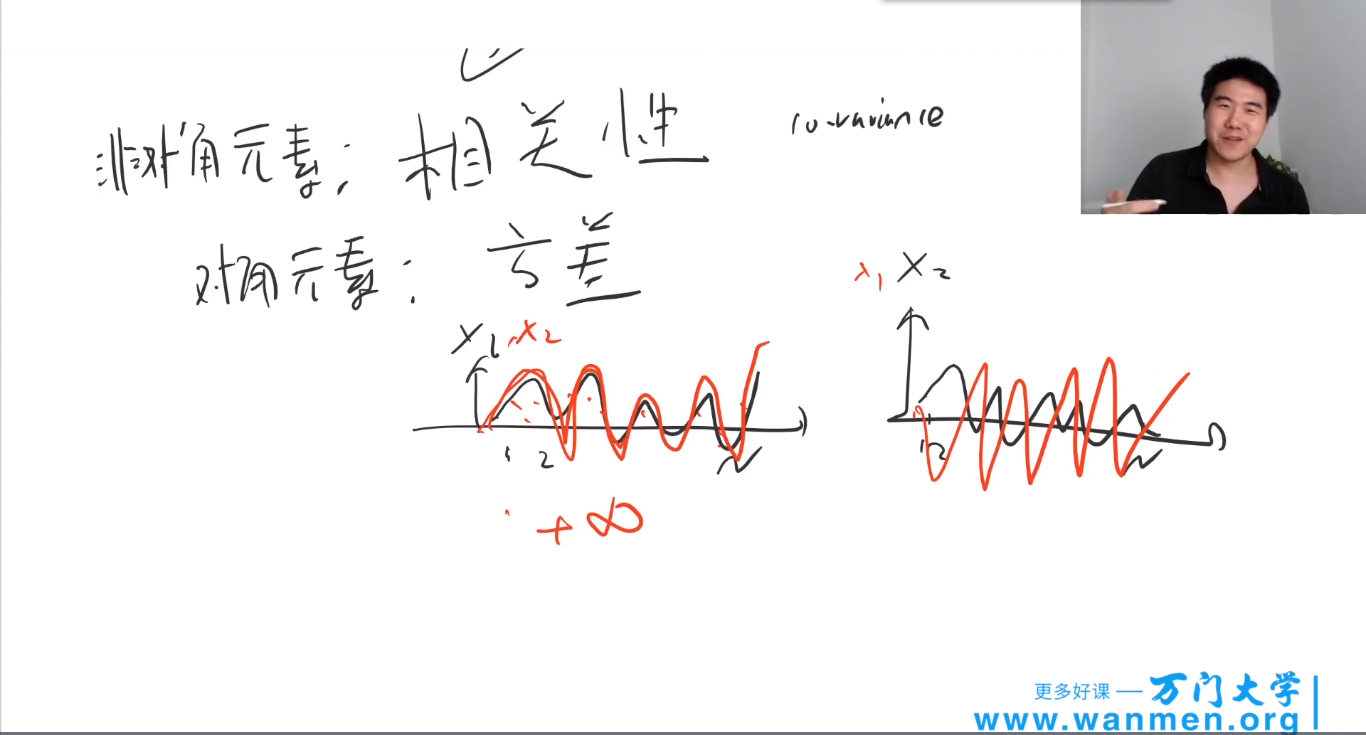 非对角元素: 相关性
co-variance
对角元素: 方差
X1 X2
x1 X2
1 2 N
1 2 N
+ ∞
更多好课 — 万门大学
www.wanmen.org